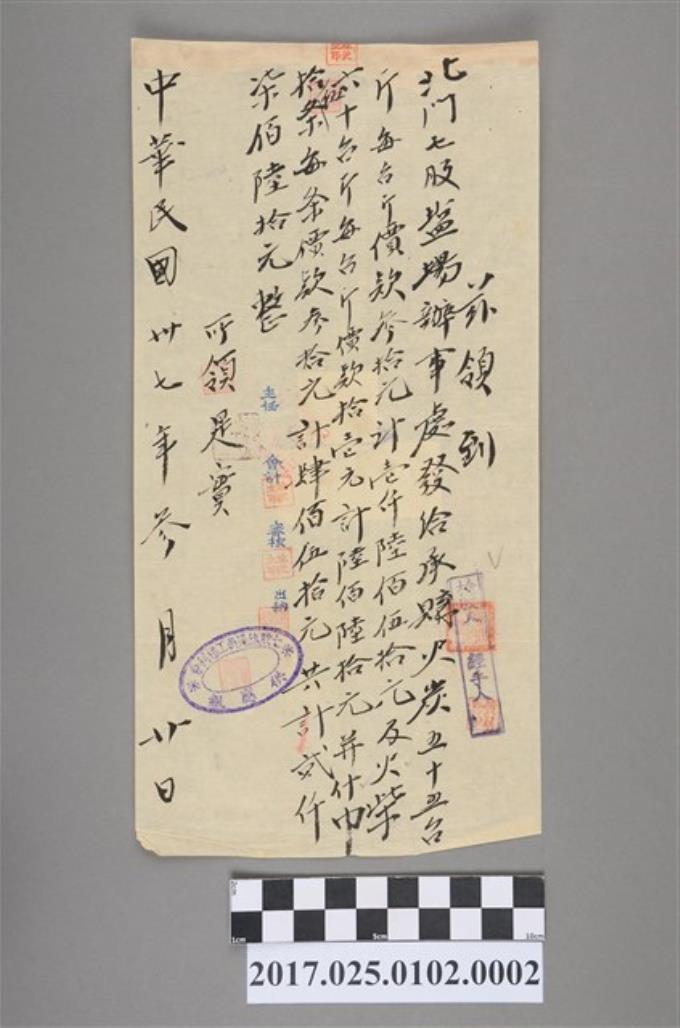 茲領到
北門七股鹽場辦事處發給承購火炭五十五台
斤每台斤價款參拾元計壹仟陸佰伍拾元及火柴
六十台斤每台斤價款拾壹元計陸佰陸拾元并什巾
拾條每条價款參拾元計肆佰伍拾元共計貳仟
柒佰陸拾元整
所領是實
主任 會計 出納
經手人
中華民國卅七年參月廿日
1cm 5cm 10cm
2017.025.0102.0002